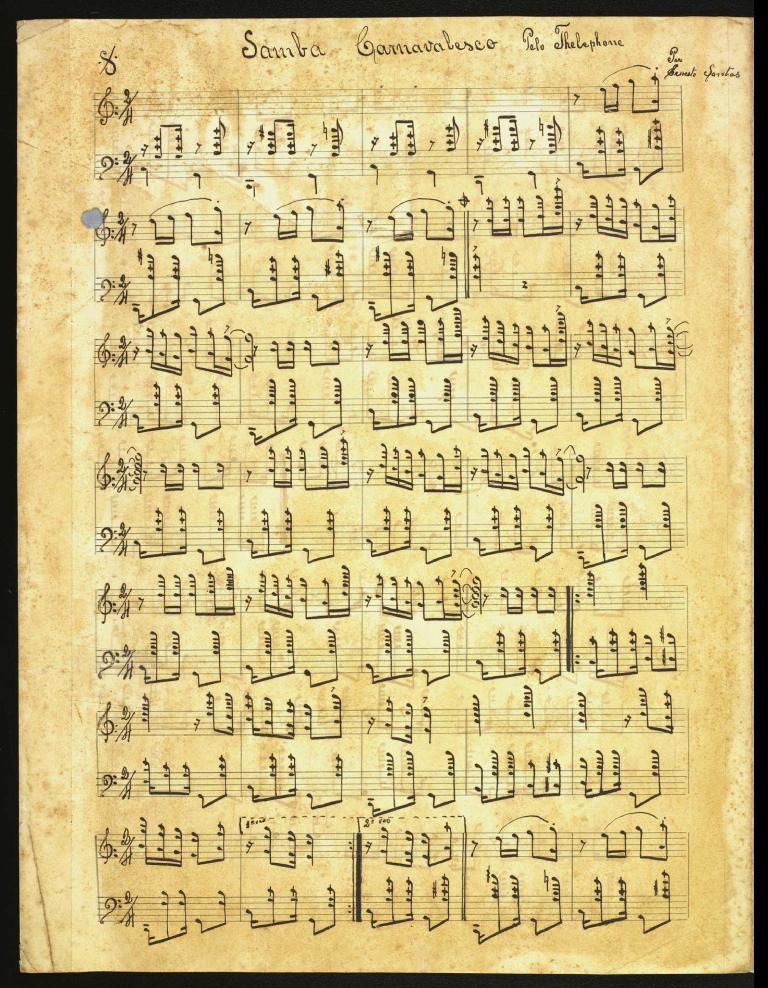 Samba Carnavalesco Pelo Thelephone
Por
Ernesto Santos
1ª vez
2ª vez